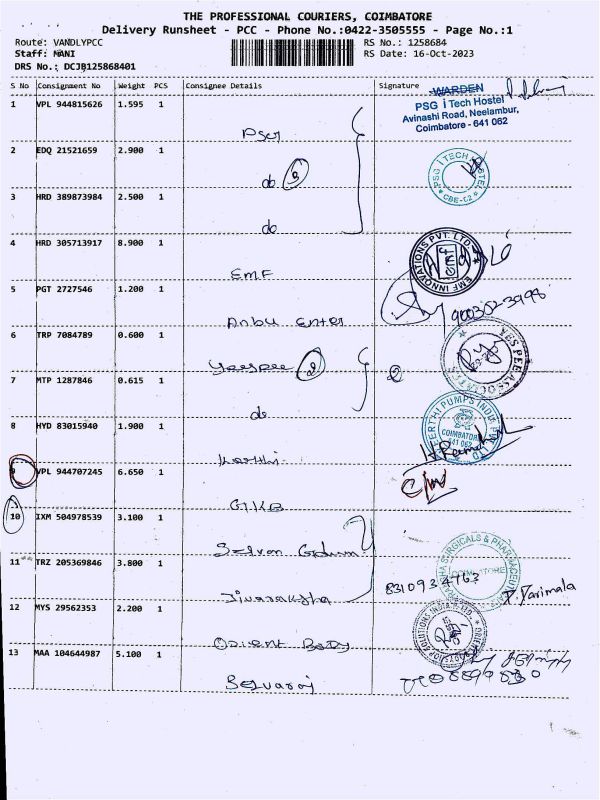 THE PROFESSIONAL COURIERS, COIMBATORE
Delivery Runsheet - PCC - Phone No.:0422-3505555 - Page No.:1
Route: VANDLYPCC RS No.: 1258684
Staff: MANI RS Date: 16-Oct-2023
DRS No.: DCJB125868401
S No Consignment No Weight PCS Consignee Details Signature
1 VPL 944815626 1.595 1 PSG
WARDEN
PSG iTech Hostel
Avinashi Road, Neelambur,
Coimbatore - 641 062
2 EDQ 21521659 2.900 1 do 3
PSG iTECH HOSTEL
CBE-62
3 HRD 389873984 2.500 1 do
4 HRD 305713917 8.900 1 EMF
EMF INNOVATIONS PVT. LTD.
5 PGT 2727546 1.200 1 Anbu Enter
900352-3998
6 TRP 7084789 0.600 1 Yeespee 2
YES PEE ASSOCIATES
7 MTP 1287846 0.615 1 do 2
8 HYD 83015940 1.900 1
PUMPS INDIA PVT LTD
COIMBATORE
641 062
9 VPL 944707245 6.650 1 GKB
10 IXM 504978539 3.100 1 Selvan
11 TRZ 205369846 3.800 1 Jivaraksha
SURGICALS & PHARMACEUTICALS
COIMBATORE
8310934763 P. Parimala
12 MYS 29562353 2.200 1 Orient Body
SOLUTIONS INDIA P. LTD.
13 MAA 104644987 5.100 1 Selvaraj